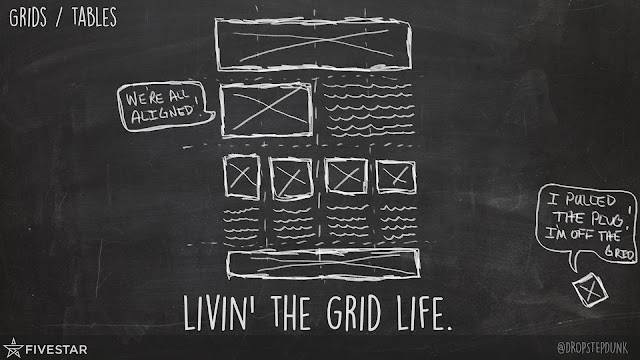 GRIDS / TABLES
WE'RE ALL
ALIGNED!
I PULLED
THE PLUG!
I'M OFF THE
GRID
LIVIN' THE GRID LIFE.
FIVESTAR
@DROPSTEPDUNK